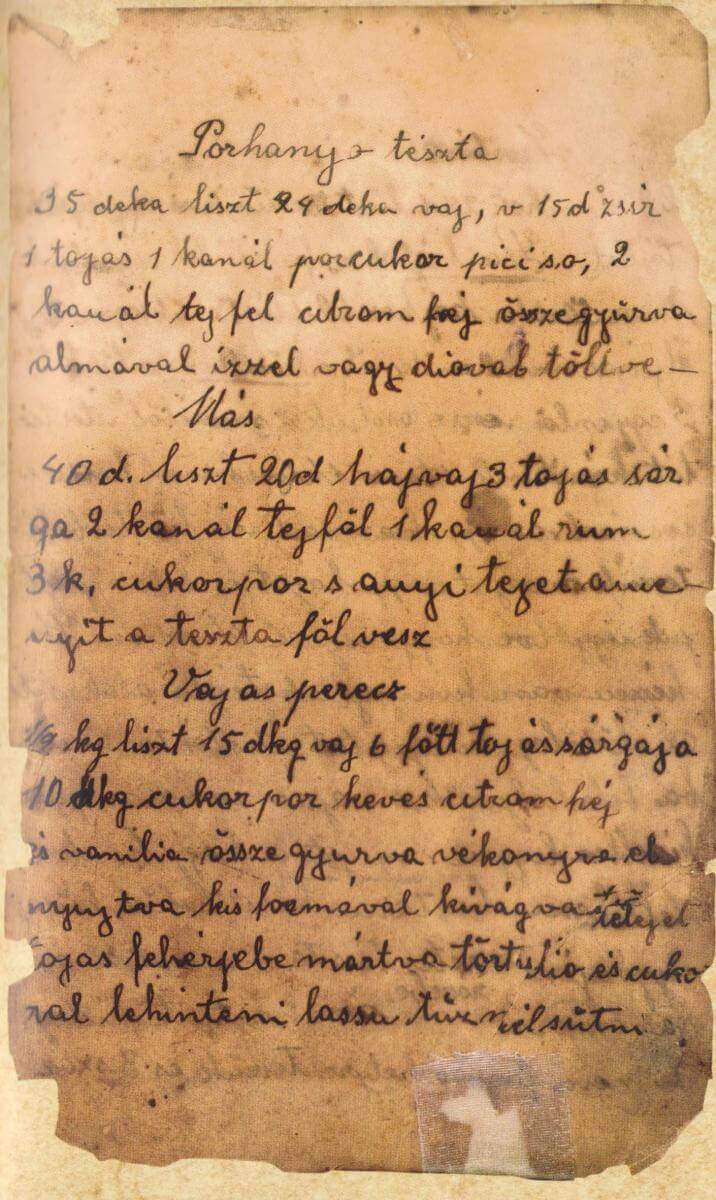 Porhanyo tészta
35 deka liszt 24 deka vaj, v 15 d zsir
1 tojás 1 kanál porcukor pici so, 2
kanál tejfel citrom héj összegyúrva
almával ízzel vagy dioval töltve –
Más
40 d. liszt 20d hájvaj 3 tojás sár
ga 2 kanál tejföl 1 kanál rum
3 k, cukorpor s anyi tejet ame-
nyit a teszta föl vesz
Vajas perecz
kg liszt 15 dkg vaj 6 főtt tojás sárgája
10 dkg cukorpor kevés citrom héj
és vanilia össze gyurva vékonyra el
nyujtva kis formával kivágva tetejet
tojas fehérjebe mártva tört dio és cuko
ral lehinteni lassu tüznél sütni